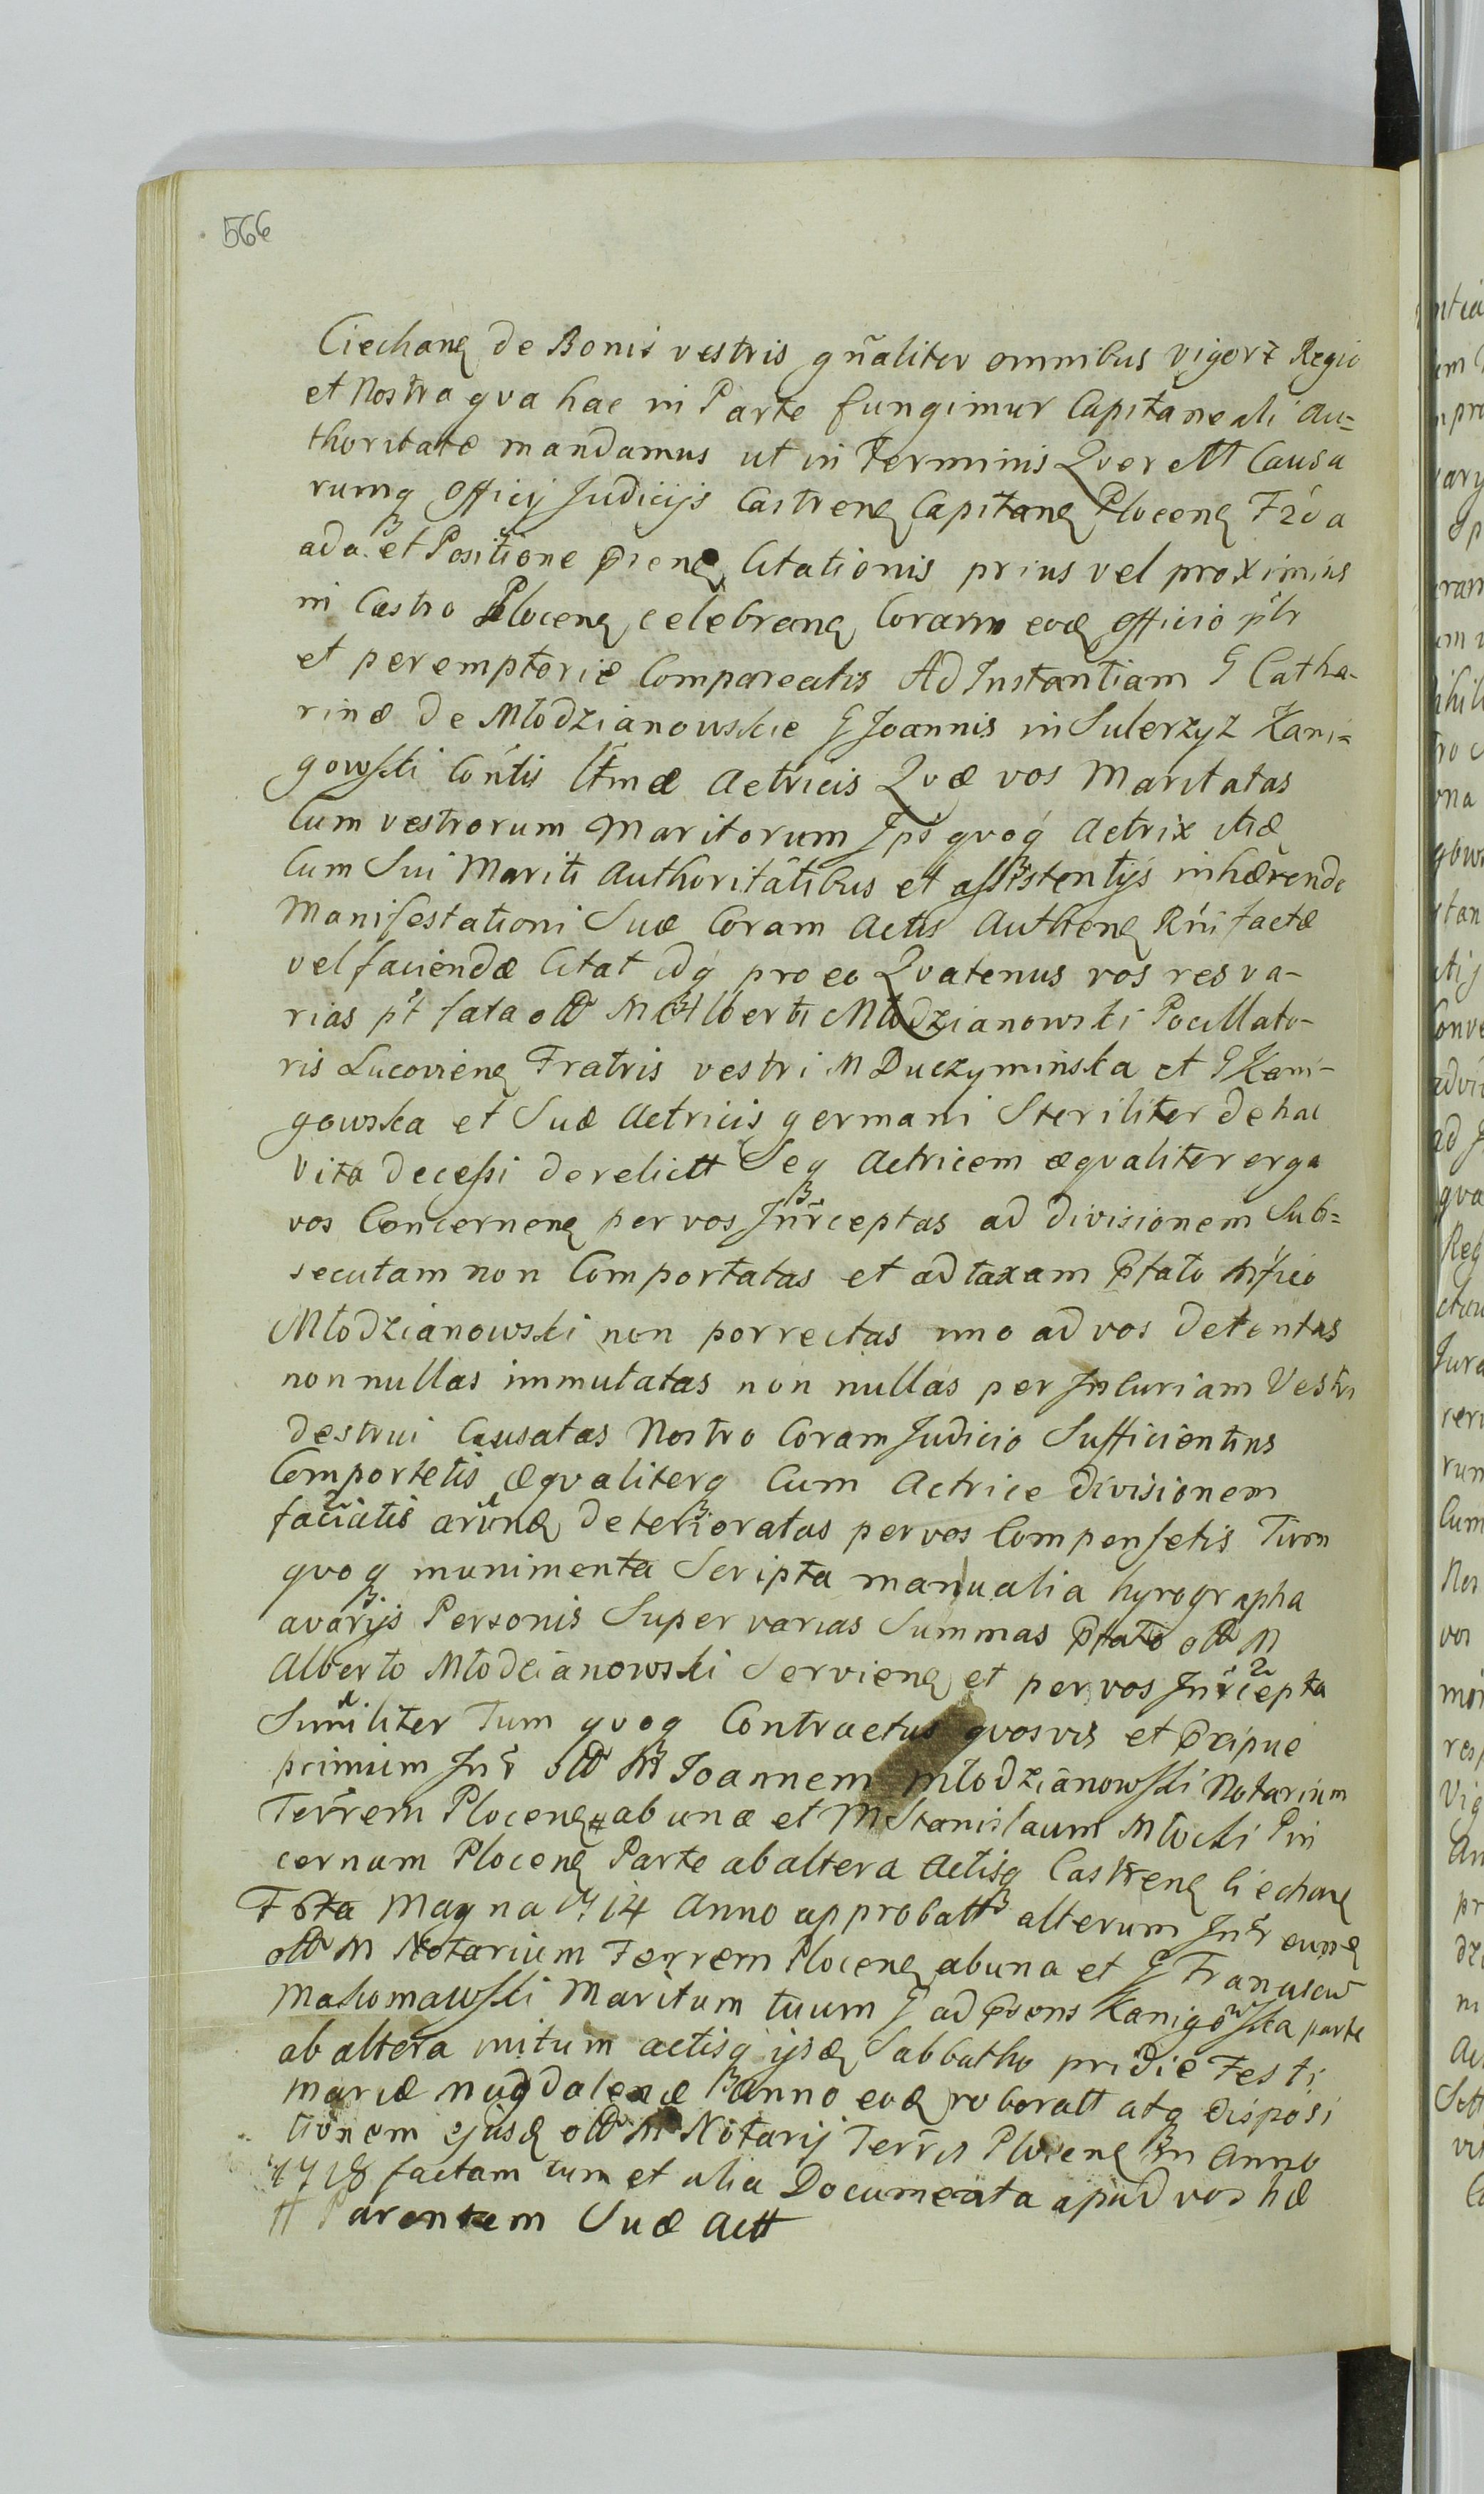 566
Ciechanq de Bonis vestris gñaliter omnibus vigore Regio
et Nostra qva hac in Parte fungimur Capitaneali au=
thoritate mandamus ut in Terminis Qverett Causa
rumq Officij Judicijs Castrenq Capitanq Plocenq
ad a et Positione Citationis prius vel proximius
in Castro Plocenq celebranq Coram eodq Officio
et peremptorie Compareatis Ad Instantiam G Catha-
rinæ de Młodzianowskie G Joannis in Sulerzyz Kani=
gowski Cóntis ltmæ Actricis Qvæ vos Maritatas
Cum vestrorum Maritorum Ips qvoq Actrix
Cum Sui Mariti Authoritatibus et assistentijs inhærendo
Manifestationi Suæ Coram Actis Authenq Rni factæ
vel faciendæ Citat idq pro eo Qvatenus vos res va-
rias pt fata M Alberti Młodzianowski Pocillato-
ris Lucovienq Fratris vestri M Duczyminska et G Kani-
gowska et Suæ Actricis germani Steriliter de hac
vita decessi derelictt Seq Actricem æqvaliter erga
vos Concernenq per vos Intrceptas ad divisionem Sub=
secutam non Comportatas et ad taxam Ptato
Młodzianowski non porrectas imo ad vos detentas
nonnullas immutatas non nullas per Incuriam Vestr
destrui Causatas Nostro Coram Judicio Sufficientius
Comportetis æqvaliterq Cum Actrice divisionem
faciatis deterioratas per vos Compensetis Tum
qvoq munimenta Scripta manualia hyrographa
a varijs Personis Super varias Summas Ptato M
Alberto Młodzianowski Servienq et per vos Intrcepta
Similiter Tum qvoq Contractus qvosvis et Præcipue
primum Intr M Joannem Młodzianowski Notarium
Terrem Plocenq ab una et M Stanislaum Młocki Pin
cernam Plocenq Parte ab altera Actisq Castrenq Ciechanq
Magna 1714 Anno approbatt alterum Intr eundq
M Notarium Terrem Plocenq ab una et G Franciscū
Makomawski Maritum tuum G ad Præsens Kanigowska parte
ab altera initum actisq ijsdq Sabbatho pridie Festi
Mariæ Magdalenæ Anno eodq roboratt atq disposi
tionem ejusdq M Notarij Terris Plocenq in Anno
1718 factam tum et alia Documenta apud vos hæ
# Parentem Suæ Actt